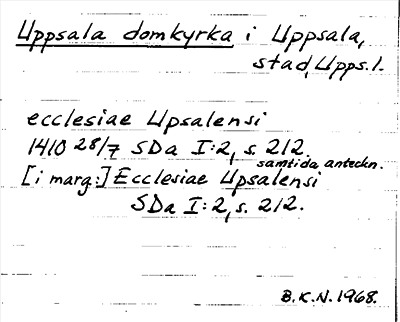 Uppsala domkyrka i Uppsala,
stad, Upps.l.
ecclesiae Upsalensi
1410 28/7 SDa I:2, s. 212.
samtida anteckn.
[i marg:] Ecclesiae Upsalensi
SDa I:2, s. 212.
B.K.N. 1968.